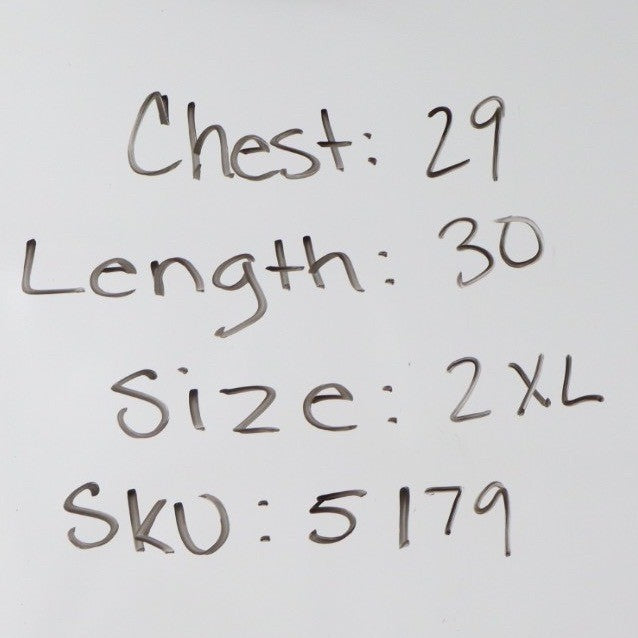 Chest: 29
Length: 30
Size: 2XL
SKU: 5179